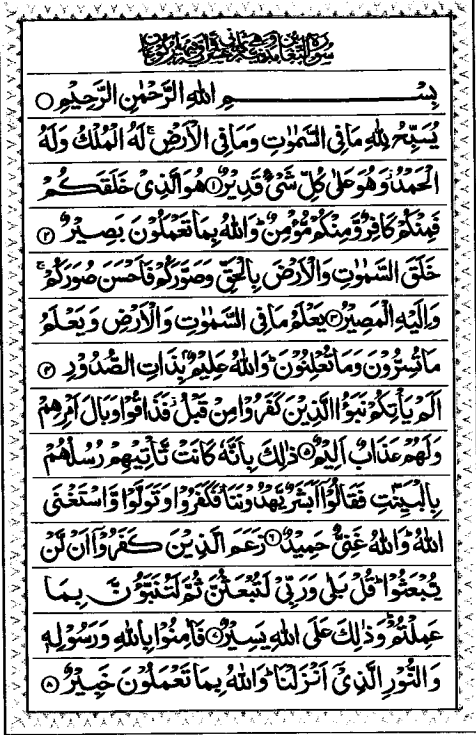 سورة التغابن مدنية وهي ثماني عشرة آية وفيها ركوعان
بِسْمِ اللهِ الرَّحْمٰنِ الرَّحِيْمِ ○
يُسَبِّحُ لِلّٰهِ مَا فِي السَّمٰوٰتِ وَمَا فِي الْاَرْضِ ۚ لَهُ الْمُلْكُ وَلَهُ
الْحَمْدُ ۫ وَهُوَ عَلٰى كُلِّ شَيْءٍ قَدِيْرٌ ﴿۱﴾ هُوَ الَّذِيْ خَلَقَكُمْ
فَمِنْكُمْ كَافِرٌ وَّمِنْكُمْ مُّؤْمِنٌ ؕ وَاللهُ بِمَا تَعْمَلُوْنَ بَصِيْرٌ ﴿۲﴾
خَلَقَ السَّمٰوٰتِ وَالْاَرْضَ بِالْحَقِّ وَصَوَّرَكُمْ فَاَحْسَنَ صُوَرَكُمْ ۚ
وَاِلَيْهِ الْمَصِيْرُ ﴿۳﴾ يَعْلَمُ مَا فِي السَّمٰوٰتِ وَالْاَرْضِ وَيَعْلَمُ
مَا تُسِرُّوْنَ وَمَا تُعْلِنُوْنَ ؕ وَاللهُ عَلِيْمٌۢ بِذَاتِ الصُّدُوْرِ ﴿۴﴾
اَلَمْ يَاْتِكُمْ نَبَؤُا الَّذِيْنَ كَفَرُوْا مِنْ قَبْلُ ۫ فَذَاقُوْا وَبَالَ اَمْرِهِمْ
وَلَهُمْ عَذَابٌ اَلِيْمٌ ﴿۵﴾ ذٰلِكَ بِاَنَّهٗ كَانَتْ تَّاْتِيْهِمْ رُسُلُهُمْ
بِالْبَيِّنٰتِ فَقَالُوْۤا اَبَشَرٌ يَّهْدُوْنَنَا ۫ فَكَفَرُوْا وَتَوَلَّوْا وَّاسْتَغْنَى
اللهُ ؕ وَاللهُ غَنِيٌّ حَمِيْدٌ ﴿۶﴾ زَعَمَ الَّذِيْنَ كَفَرُوْۤا اَنْ لَّنْ
يُّبْعَثُوْا ؕ قُلْ بَلٰى وَرَبِّيْ لَتُبْعَثُنَّ ثُمَّ لَتُنَبَّؤُنَّ بِمَا
عَمِلْتُمْ ؕ وَذٰلِكَ عَلَى اللهِ يَسِيْرٌ ﴿۷﴾ فَاٰمِنُوْا بِاللهِ وَرَسُوْلِهٖ
وَالنُّوْرِ الَّذِيْۤ اَنْزَلْنَا ؕ وَاللهُ بِمَا تَعْمَلُوْنَ خَبِيْرٌ ﴿۸﴾